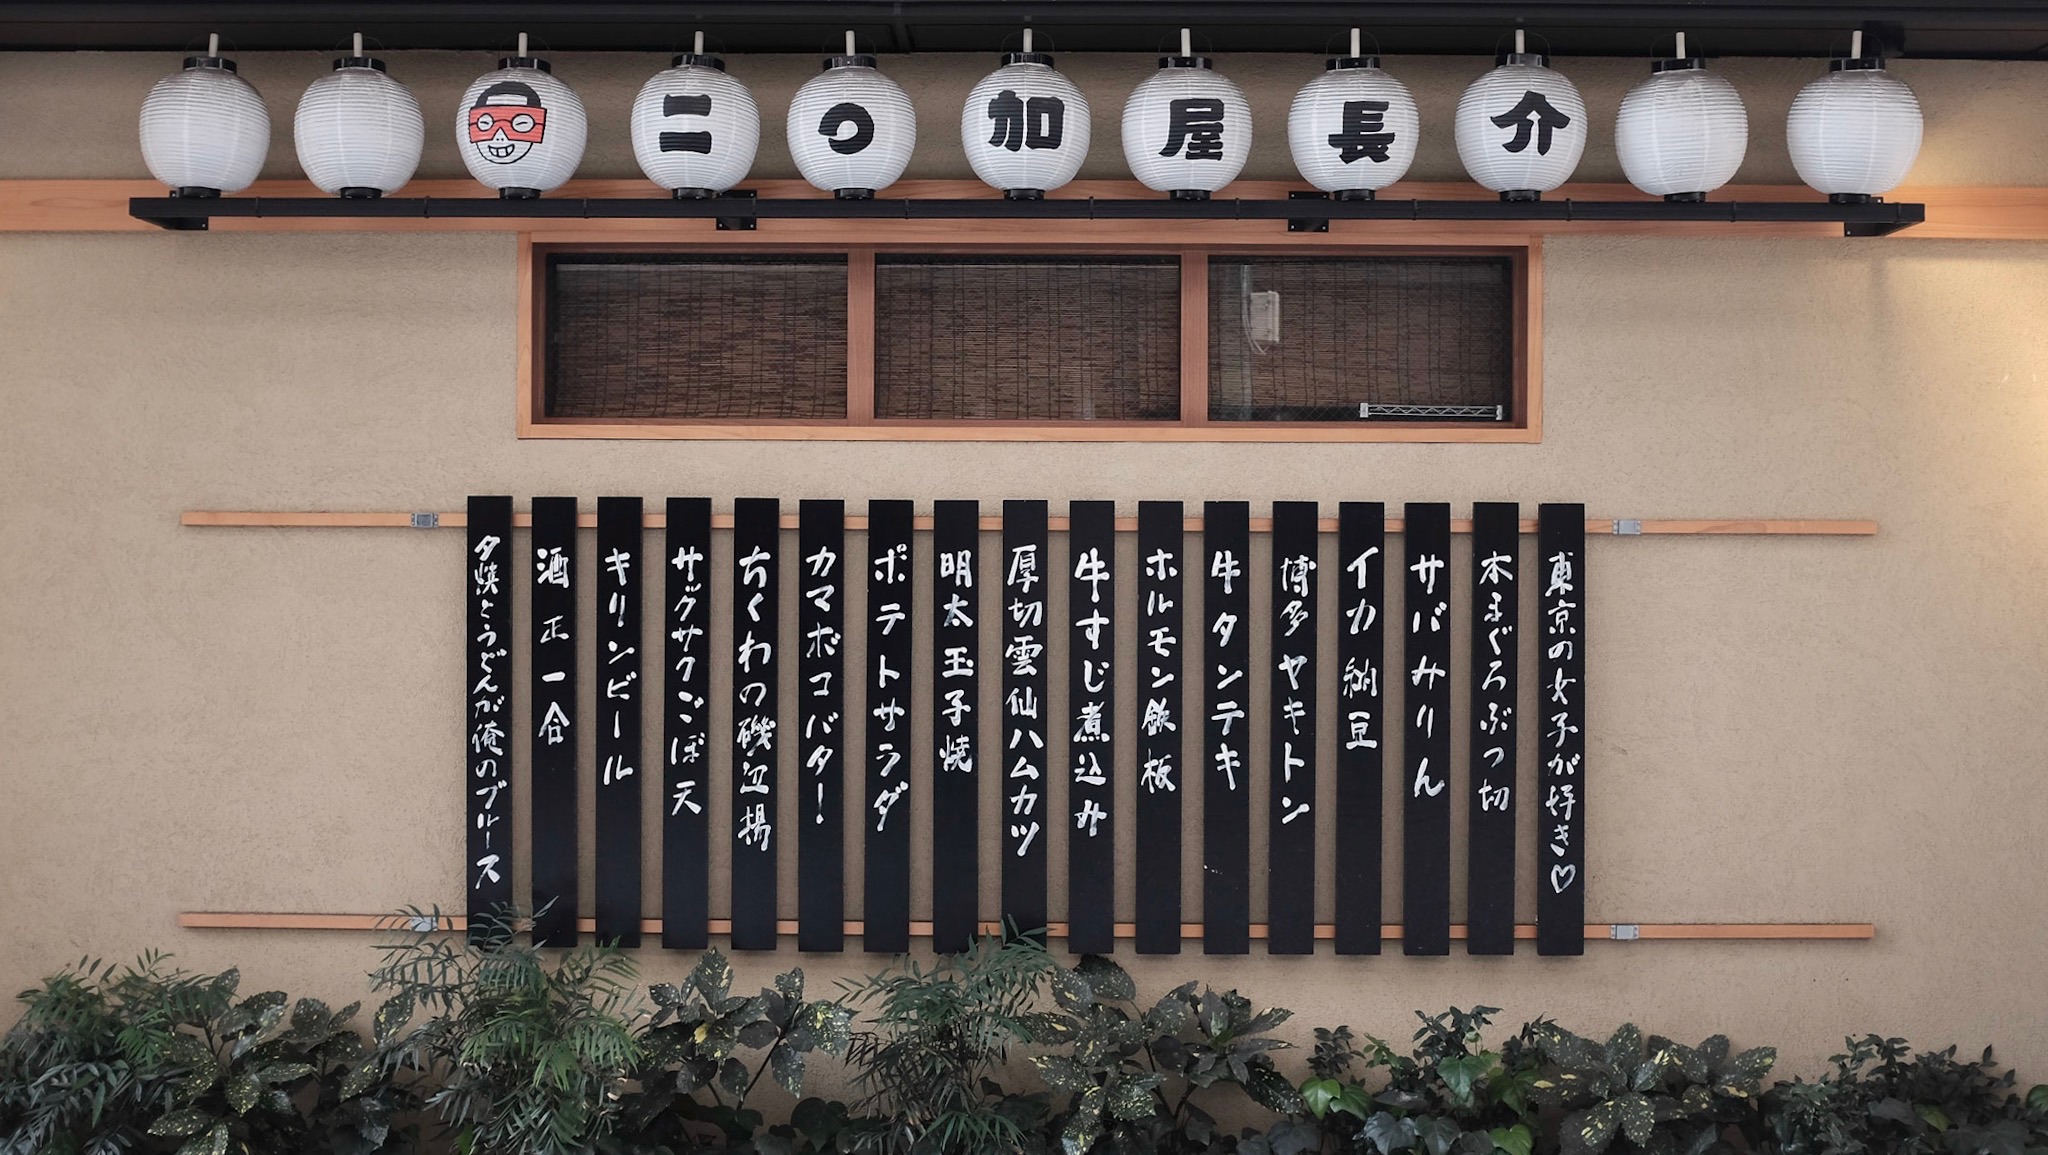 二〇加屋長介
東京の女子が好き♡
本まぐろぶつ切
サバみりん
イカ納豆
博多ヤキトン
牛タンテキ
ホルモン鉄板
牛すじ煮込み
厚切雲仙ハムカツ
明太玉子焼
ポテトサラダ
カマボコバター
ちくわの磯辺揚
サックサクごぼ天
キリンビール
酒正一合
夕焼とうどんが俺のブルース